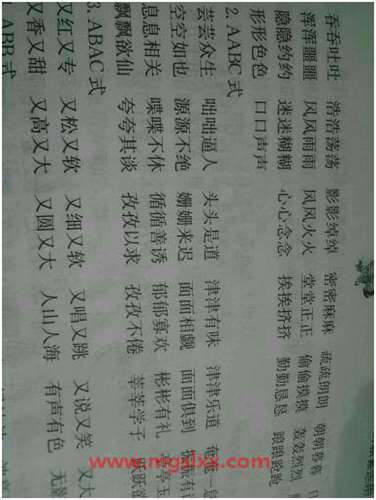 吞吞吐吐 浩浩荡荡 影影绰绰 密密麻麻 疏疏朗朗 朝朝暮暮
浑浑噩噩 风风雨雨 风风火火 堂堂正正 偷偷摸摸 轰轰烈烈
隐隐约约 迷迷糊糊 心心念念 挨挨挤挤 勤勤恳恳 踉踉跄跄
形形色色 口口声声
2. AABC 式
芸芸众生 咄咄逼人 头头是道 津津有味 津津乐道
空空如也 源源不绝 姗姗来迟 面面相觑 面面俱到
息息相关 喋喋不休 循循善诱 郁郁寡欢 彬彬有礼
飘飘欲仙 夸夸其谈 孜孜以求 孜孜不倦 莘莘学子
3. ABAC 式
又红又专 又松又软 又细又软 又唱又跳 又说又笑 又大
又香又甜 又高又大 又圆又大 人山人海 有声有色 无影
ABB 式